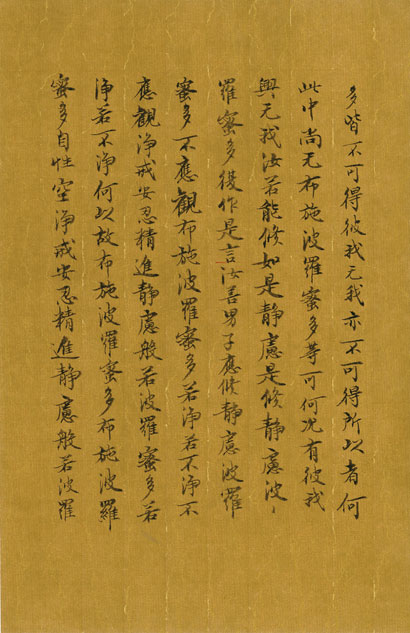 多皆不可得彼我无我亦不可得所以者何
此中尚无布施波羅蜜多等可何况有彼我
與无我汝若能修如是静慮是修静慮波〻
羅蜜多復作是言汝善男子應修静慮波羅
蜜多不應觀布施波羅蜜多若净若不净不
應觀净戒安忍精進静慮般若波羅蜜多若
净若不净何以故布施波羅蜜多布施波羅
蜜多自性空净戒安忍精進静慮般若波羅